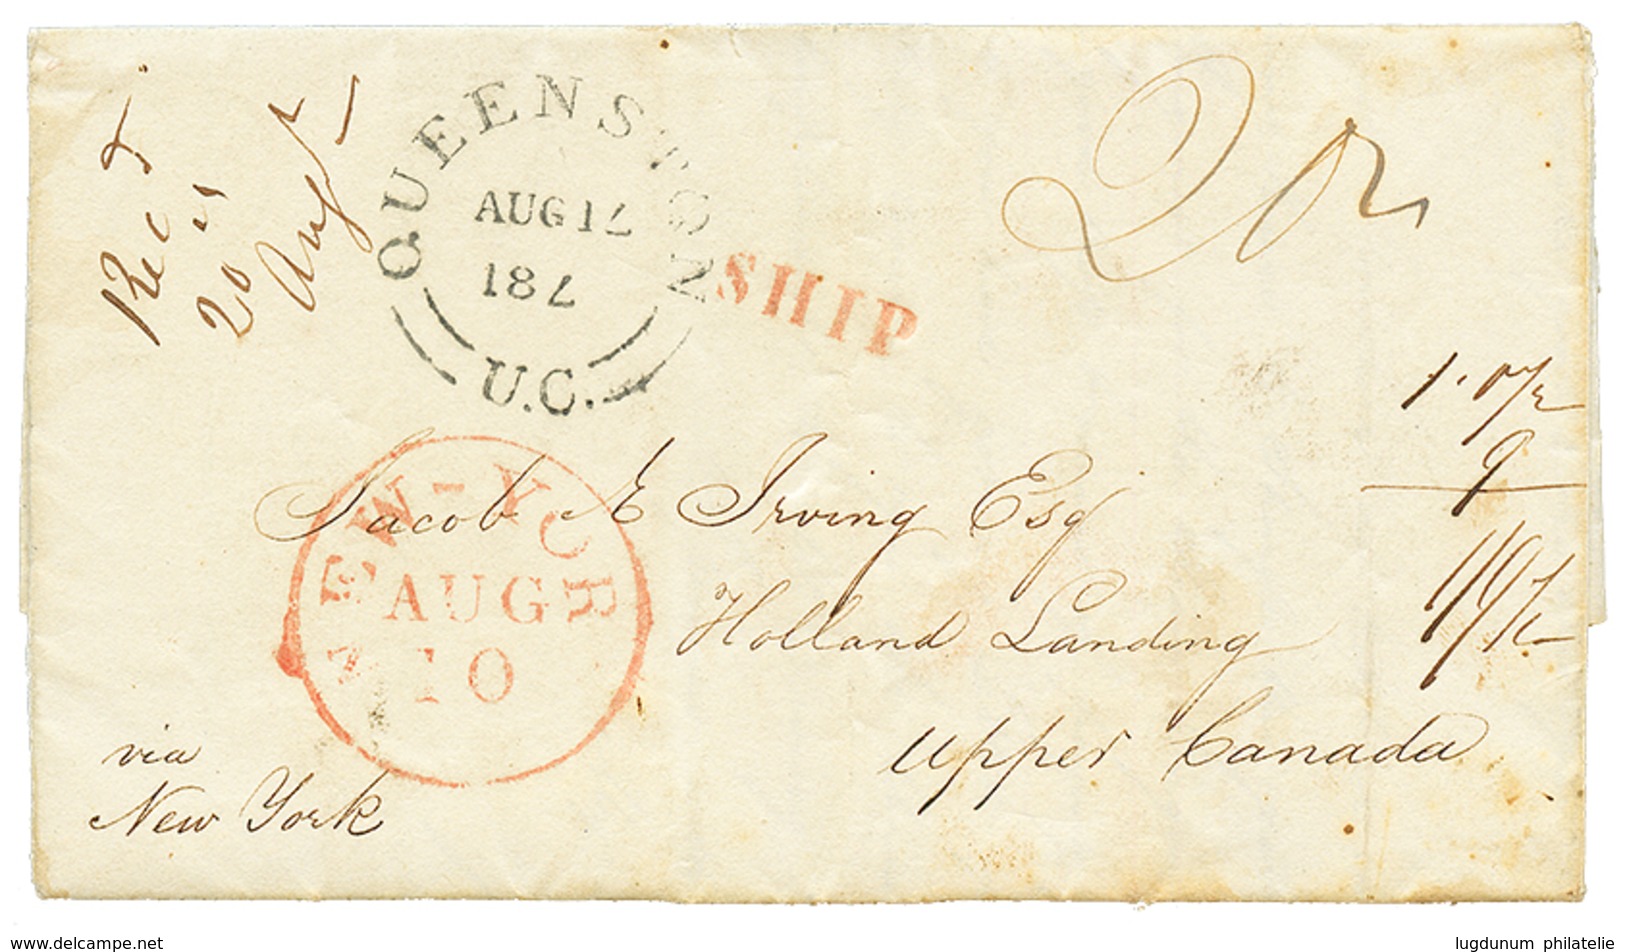 Rec d
20
Aug t
QUEENSTON
AUG 17
18
U.C.
SHIP
1. 0½
9
1/9½
NEW-YORK
AUG
10
Jacob Æ Irving Esq
Holland Landing
Upper Canada
via
New York
delcampe.net
lugdunum philatelie